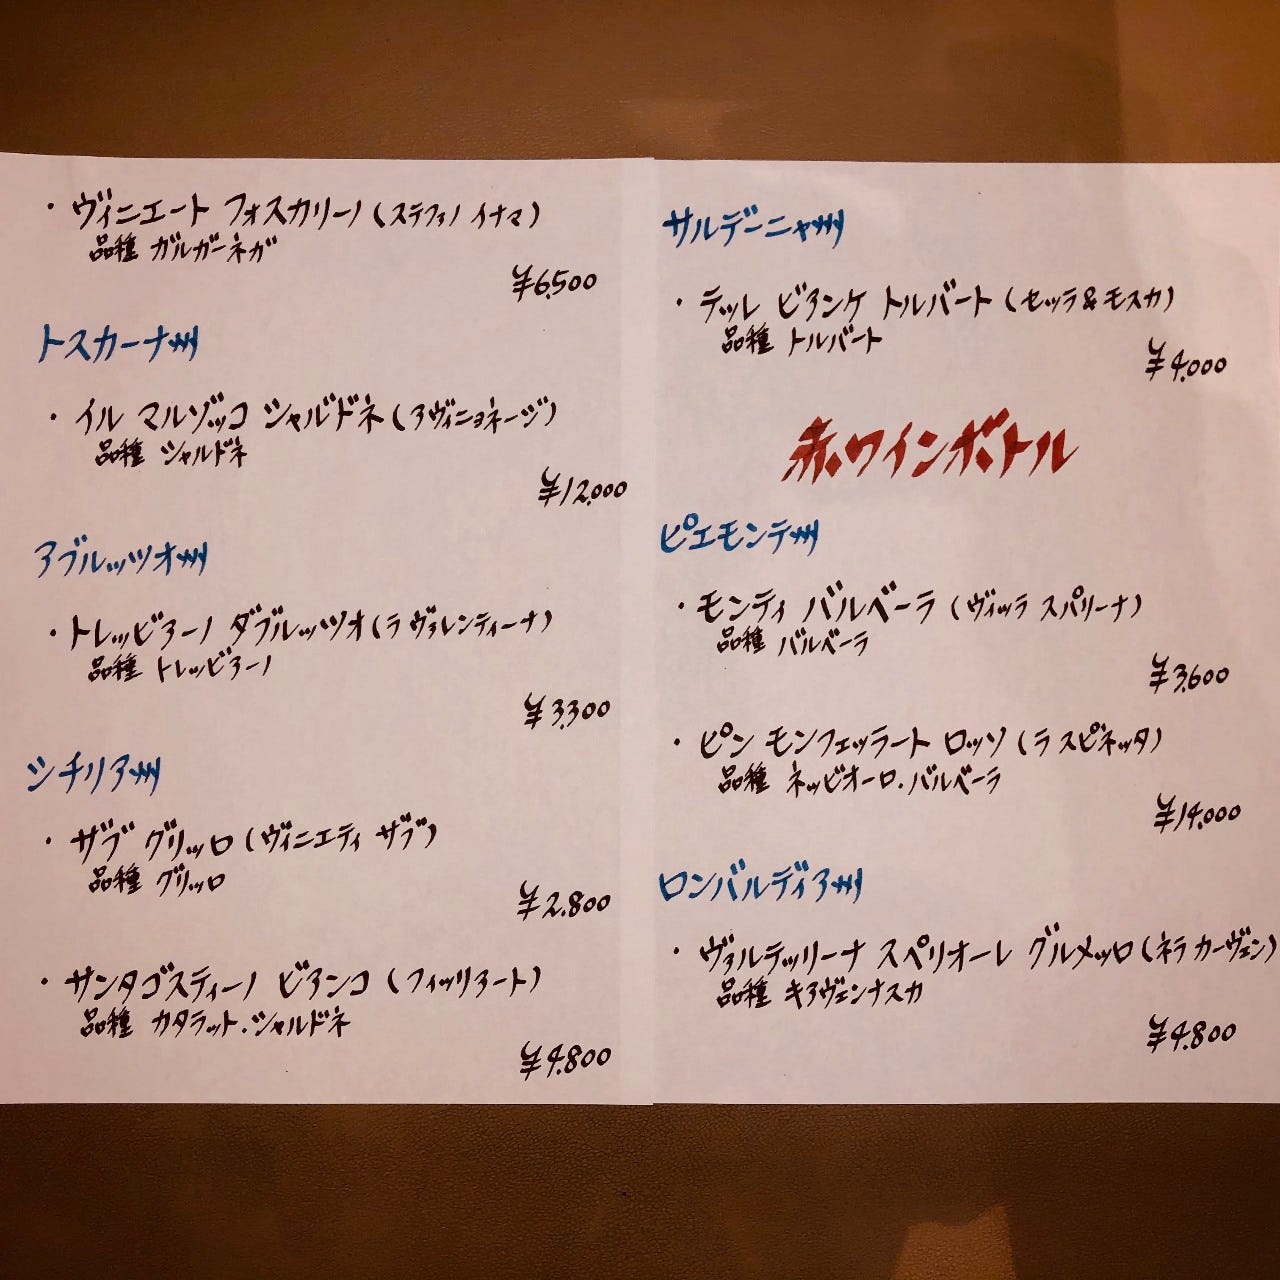 ・ヴィニエート フォスカリーノ(ステファノ イナマ)
品種 ガルガーネガ
¥6,500
トスカーナ州
・イル マルゾッコ シャルドネ(アヴィニョネージ)
品種 シャルドネ
¥12,000
アブルッツオ州
・トレッビアーノ ダブルッツオ(ラ ヴァレンティーナ)
品種 トレッビアーノ
¥3,300
シチリア州
・ザブ グリッロ(ヴィニエティ ザブ)
品種 グリッロ
¥2,800
・サンタゴスティーノ ビアンコ(フィッリアート)
品種 カタラット.シャルドネ
¥4,800
サルデーニャ州
・テッレ ビアンケ トルバート(セッラ&モスカ)
品種 トルバート
¥4,000
赤ワインボトル
ピエモンテ州
・モンティ バルベーラ(ヴィッラ スパリーナ)
品種 バルベーラ
¥3,600
・ピン モンフェッラート ロッソ(ラ スピネッタ)
品種 ネッビオーロ.バルベーラ
¥14,000
ロンバルディア州
・ヴァルテッリーナ スペリオーレ グルメッロ(ネラ カーヴェン)
品種 キアヴェンナスカ
¥4,800